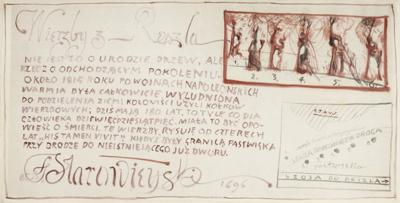 Wierzby z Reszla
NIE JEST TO O URODZIE DRZEW, ALE
RZECZ O ODCHODZĄCYM POKOLENIU.
OKOŁO 1814 ROKU PO WOJNACH NAPOLEOŃSKICH
WARMIA BYŁA CAŁKOWICIE WYLUDNIONA
DO PODZIELENIA ZIEMI KOLONIŚCI UŻYLI KOŁKÓW
WIERZBOWYCH, DZIŚ MAJĄ 180 LAT, TO TYLE CO DLA
CZŁOWIEKA DZIEWIĘĆDZIESIĄT PIĘĆ. MIAŁA TO BYĆ OPO-
WIEŚĆ O ŚMIERCI, TE WIERZBY, RYSUJĘ OD CZTERECH
LAT, „HIS TAMEN VIVIT” KIEDYŚ BYŁY GRANICĄ PASTWISKA
PRZY DRODZE DO NIEISTNIEJĄCEGO JUŻ DWORU.
F Starowieyski
1696
1.
2.
3.
4.
5.
SZOSA DO RESZLA